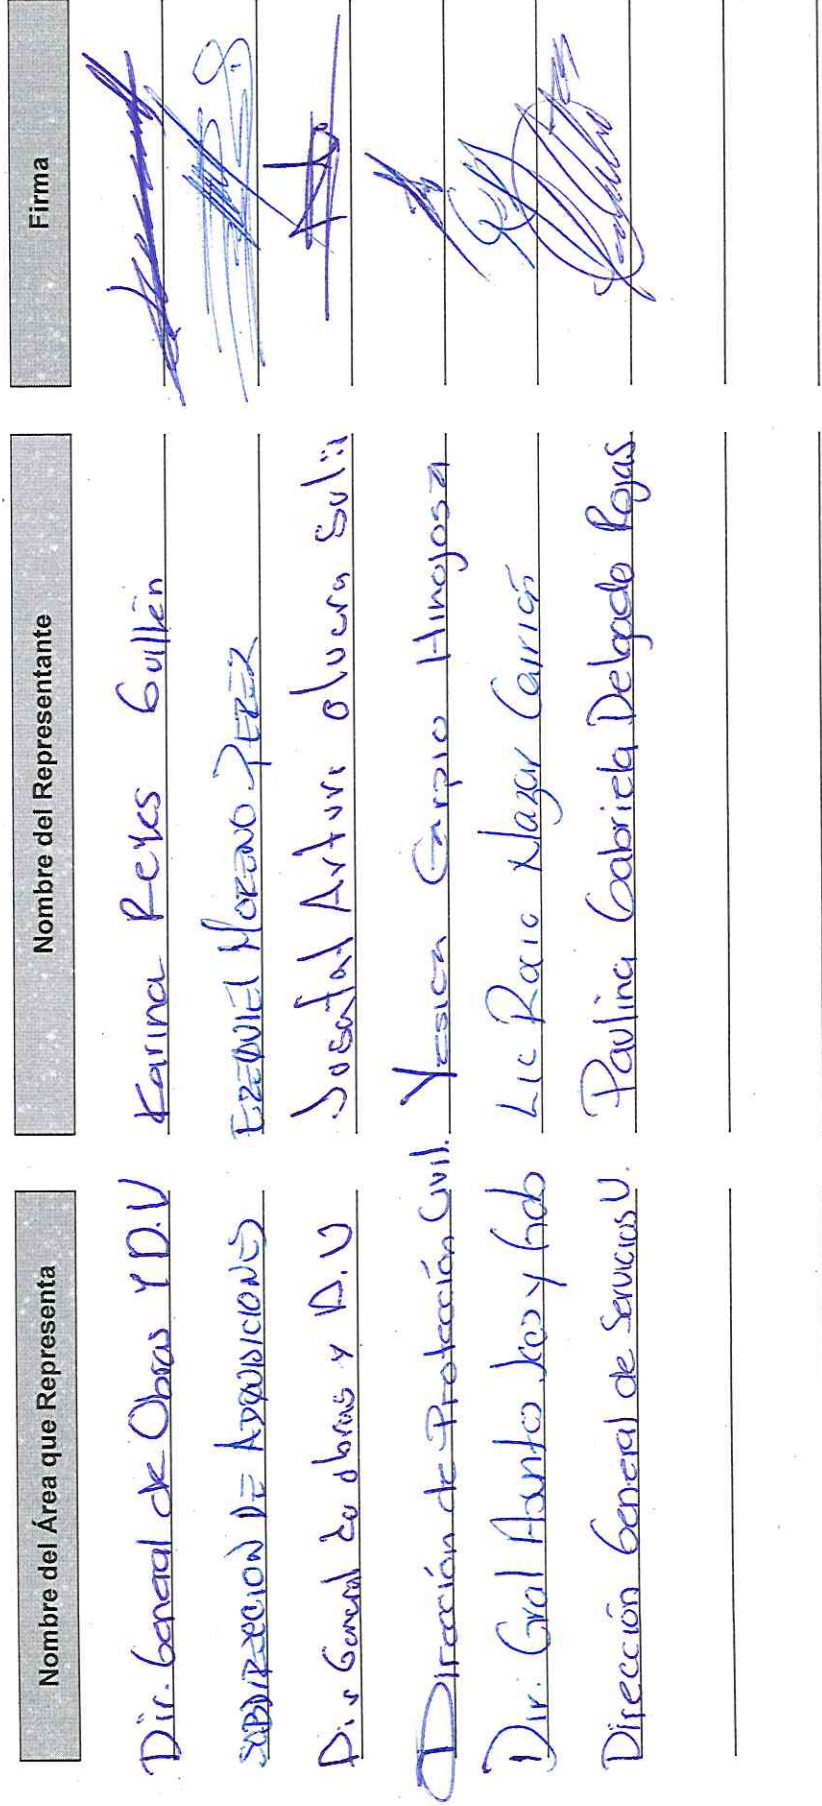 Nombre del Área que Representa Nombre del Representante Firma
Dir. General de Obras Y D.U Karina Reyes Guillén
SUBDIRECCION DE ADQUISICIONES EZEQUIEL MORENO PEREZ
Dir General de obras y D.U Josafat Arturo olvera
Dirección de Protección Civil. Yesica Carpio Hinojosa
Dir. Gral Asunto Jcos y Gob Lic Rocio Nazar
Dirección General de Servicios U. Paulina Gabriela Delgado Rojas